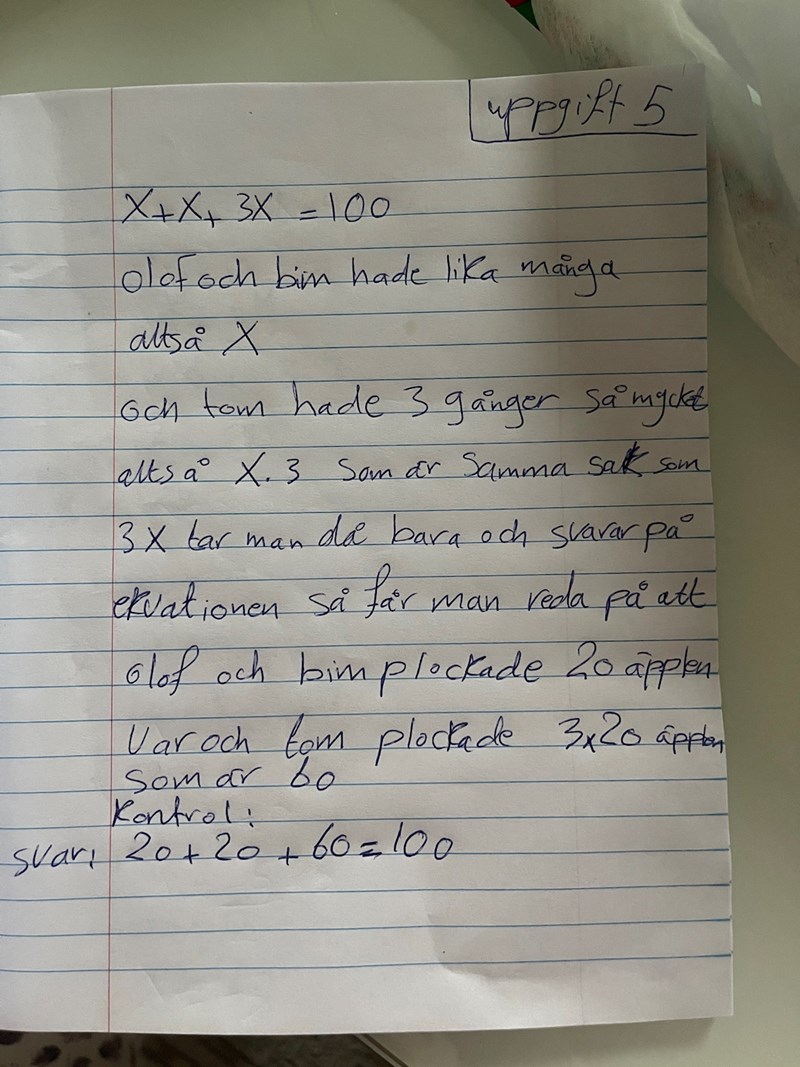 uppgift 5
X+X+ 3X = 100
Olof och bim hade lika många
alltså X
och tom hade 3 gånger så mycket
alltså X. 3 Som är Samma sak som
3X tar man då bara och svarar på
ekvationen så får man reda på att
Olof och bim plockade 20 äpplen
Var och tom plockade 3x20 äpplen
som är 60
Kontrol:
svar: 20 + 20 + 60 = 100